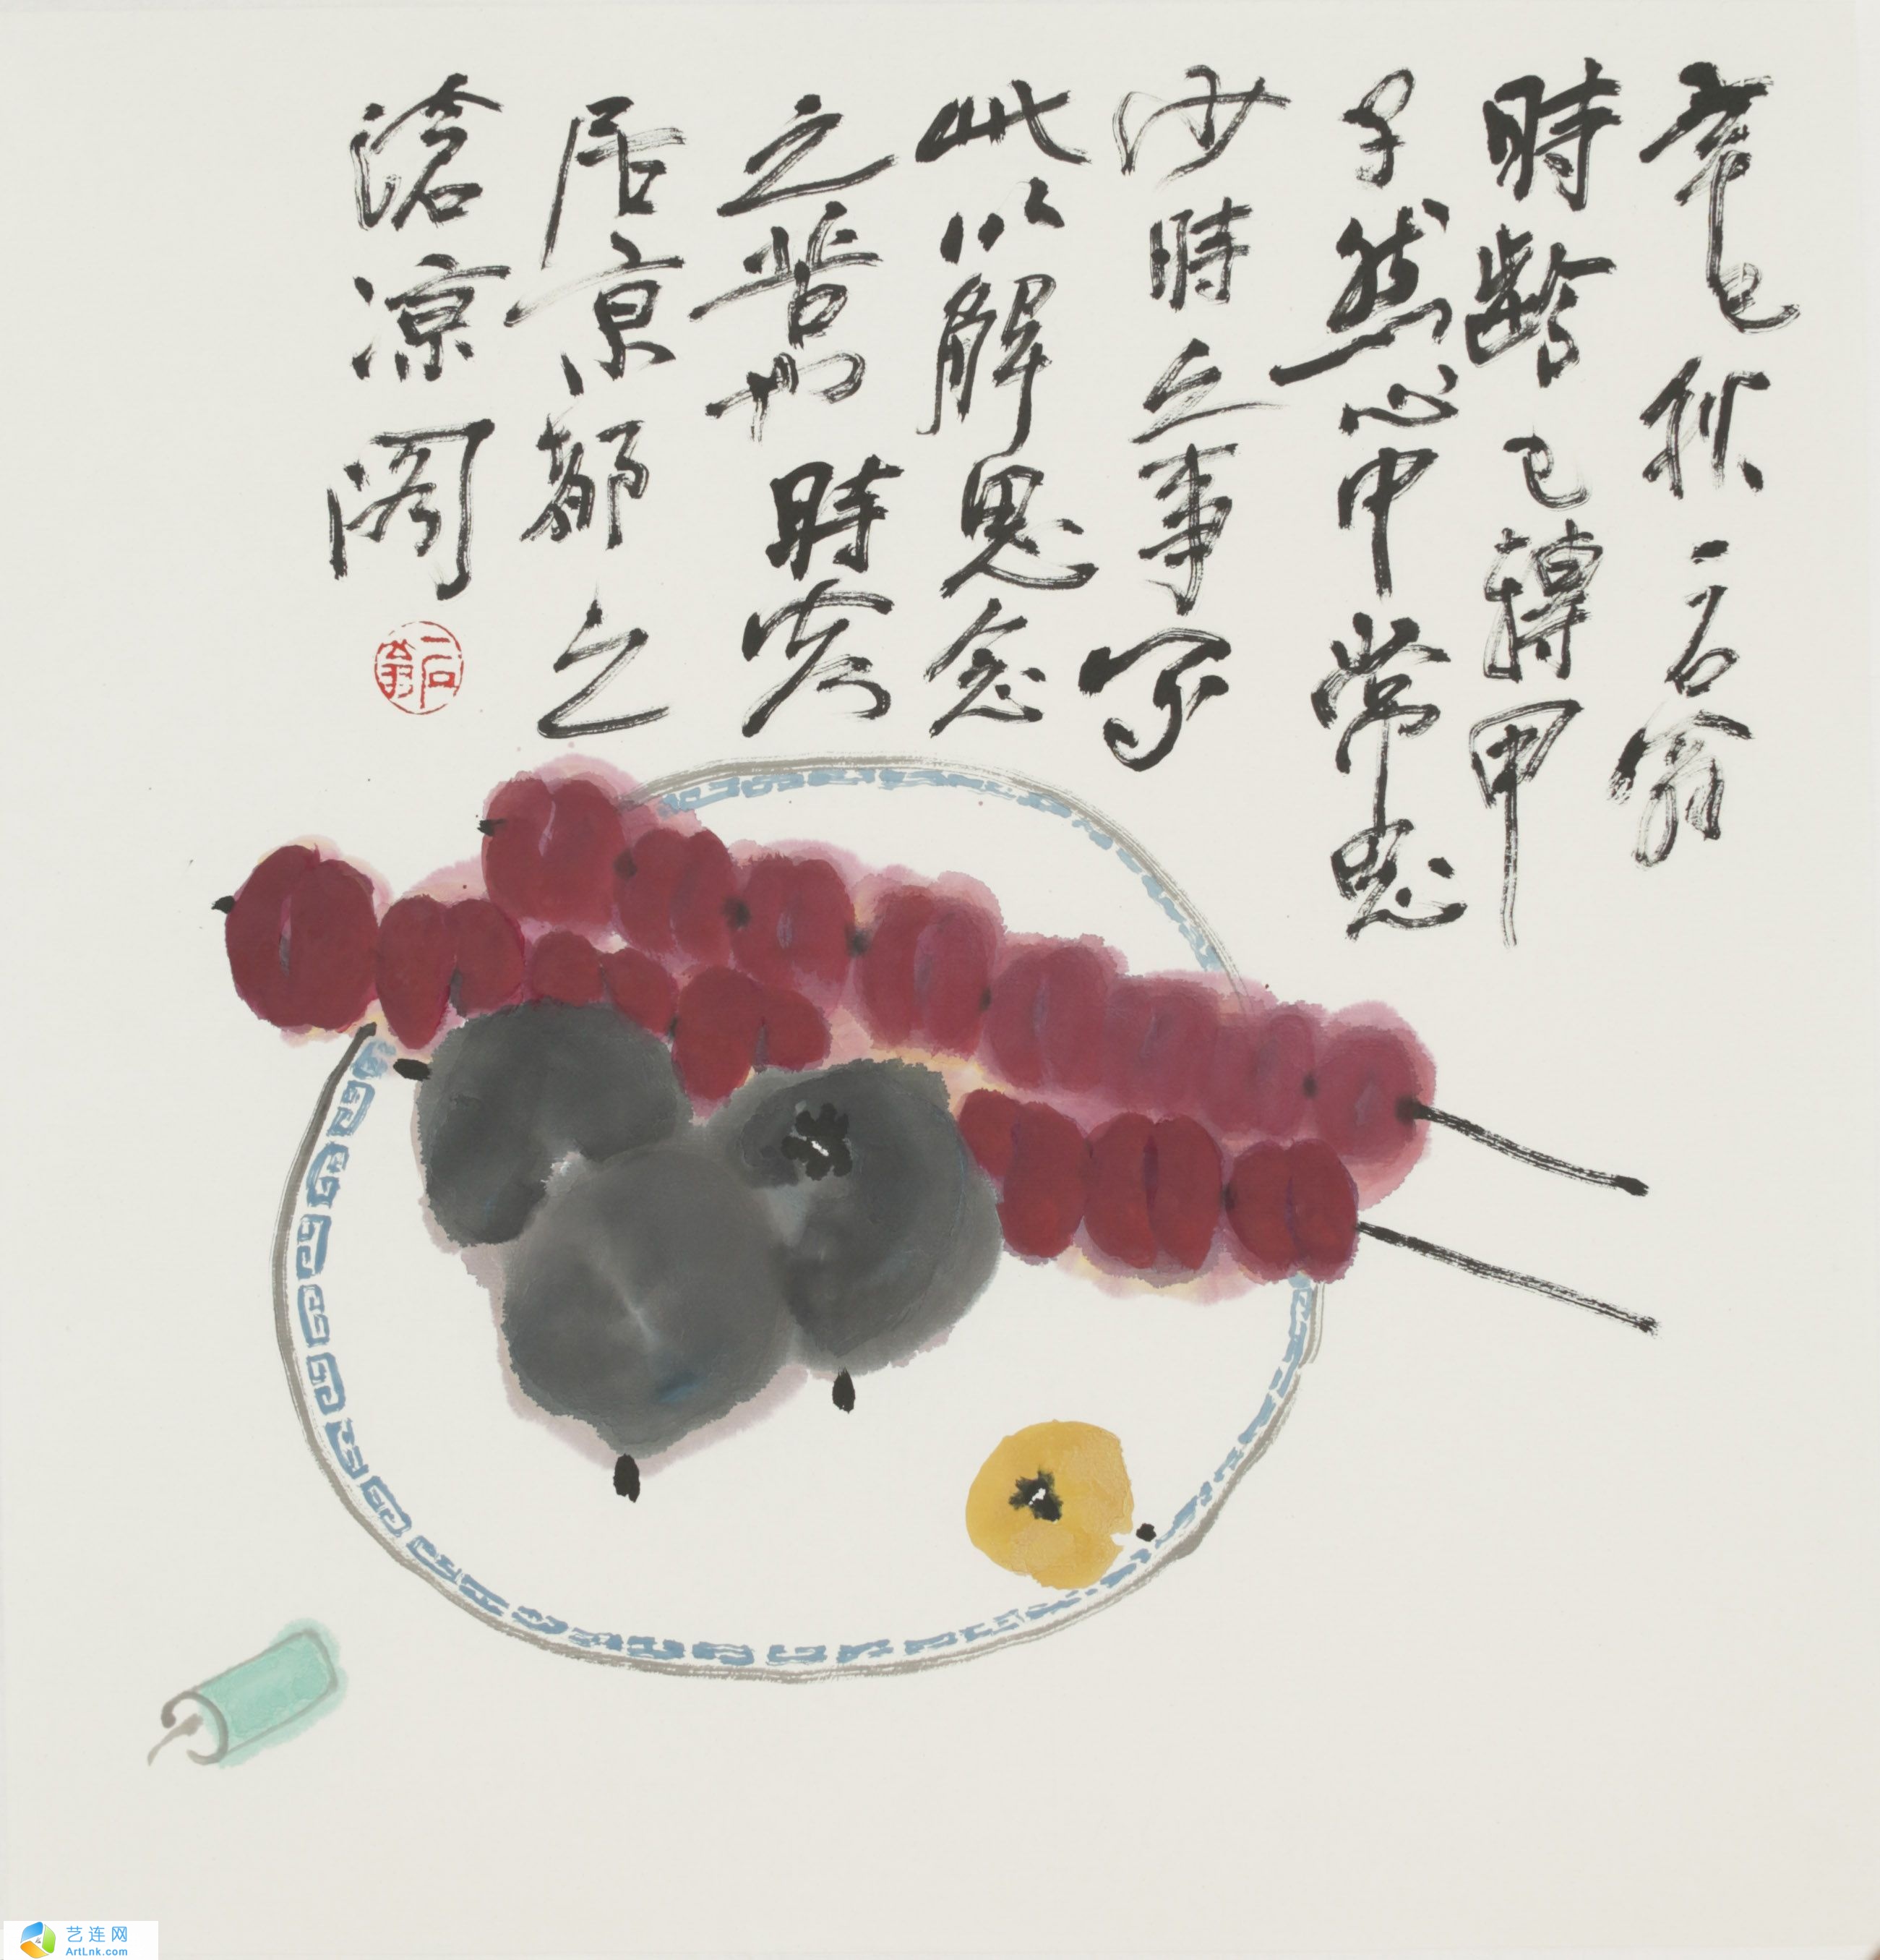 辛巳秋一石翁
時齡已轉甲
子然心中常思
時之事写
此以解思念
之苦時客
居京都之
滄凉閣
一石翁
艺连网
ArtLnk.com